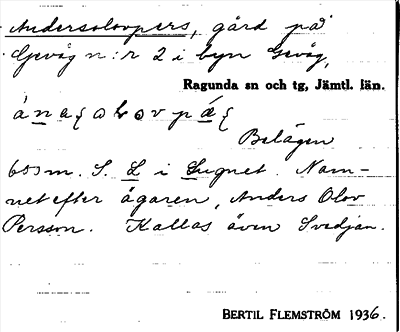 Andersolovpers, gård på
Gevåg n:r 2 i byn Gevåg,
Ragunda sn och tg, Jämtl. län.
Belägen
S. L i Lugnet. Nam-
net efter ägaren, Anders Olov
Persson. Kallas även Svedjan.
BERTIL FLEMSTRÖM 1936.